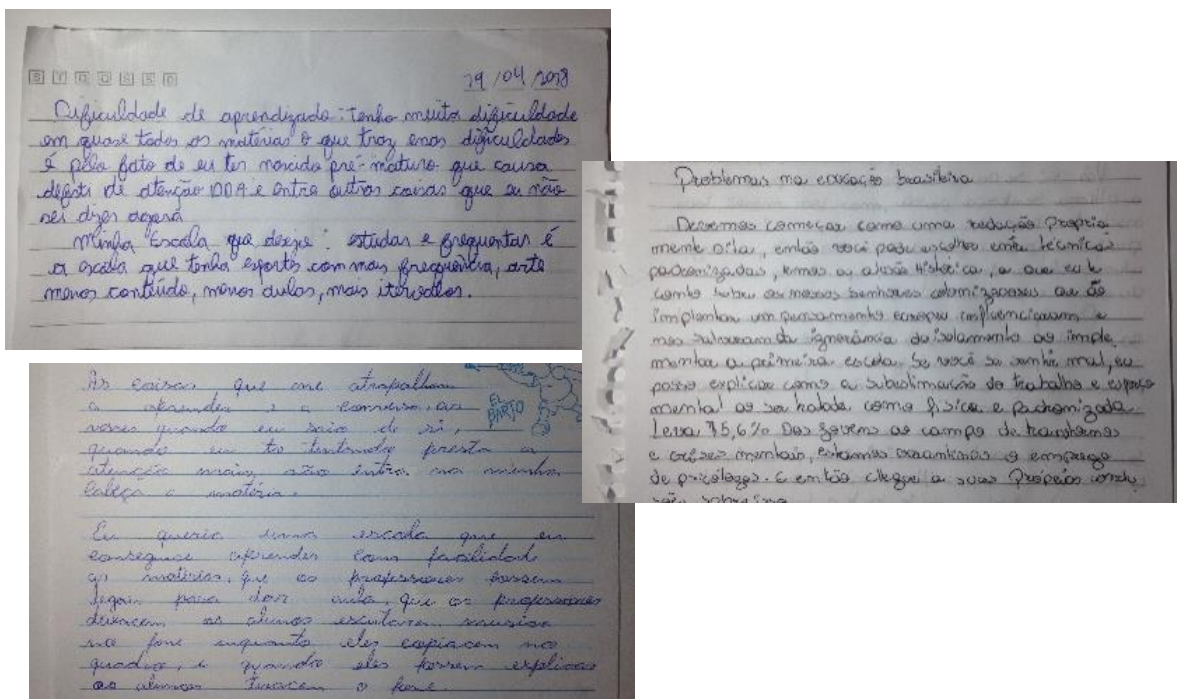 S T Q Q S S D
19/04/2018
Dificuldade de aprendizado: tenho muita dificuldade
em quase todos os matérias o que traz
é pelo fato de eu ter nascido pré-maturo que causa
de atenção DDA e entre outras coisas que eu não
sei dizer agora
Minha Escola que deseje: estudar e frequentar é
a escola que tenha esporte com mais frequência, arte
menos conteúdo, menos aulas, mais
As coisas que me atrapalham
a aprender é a conversa, as
vezes quando eu saio de si,
quando eu to tentando presta a
atenção mais não intra na minha
cabeça a matéria.
EL BARTO
Eu queria uma escola que eu
consegui aprender com facilidade
as matérias, que os professores fossem
legais para dar aula, que os professores
os alunos escutarem musica
no fone enquanto eles copiacem no
quadro, e quando eles fossem explicar
os alunos tiracem o fone.
Problemas na educação brasileira
Devemos começar como uma redação Propria
mente dita, então você pode escolher entre técnicas
padronizadas, temos a alusão Histórica, a que eu te
conto sobre os nossos senhores colonizadores que ao
implantar um pensamento europeu influenciaram e
nos da ignorância do isolamento ao imple
mentar a primeira escola. Se você se sentir mal, eu
posso explicar como a do trabalho e esforço
mental ao ser como física e Padronizada
Leva 75,6% Dos jovens ao campo de transtornos
e crises mentais, estamos o emprego
de psicólogos. e então cheguei a suas Próprias conclu